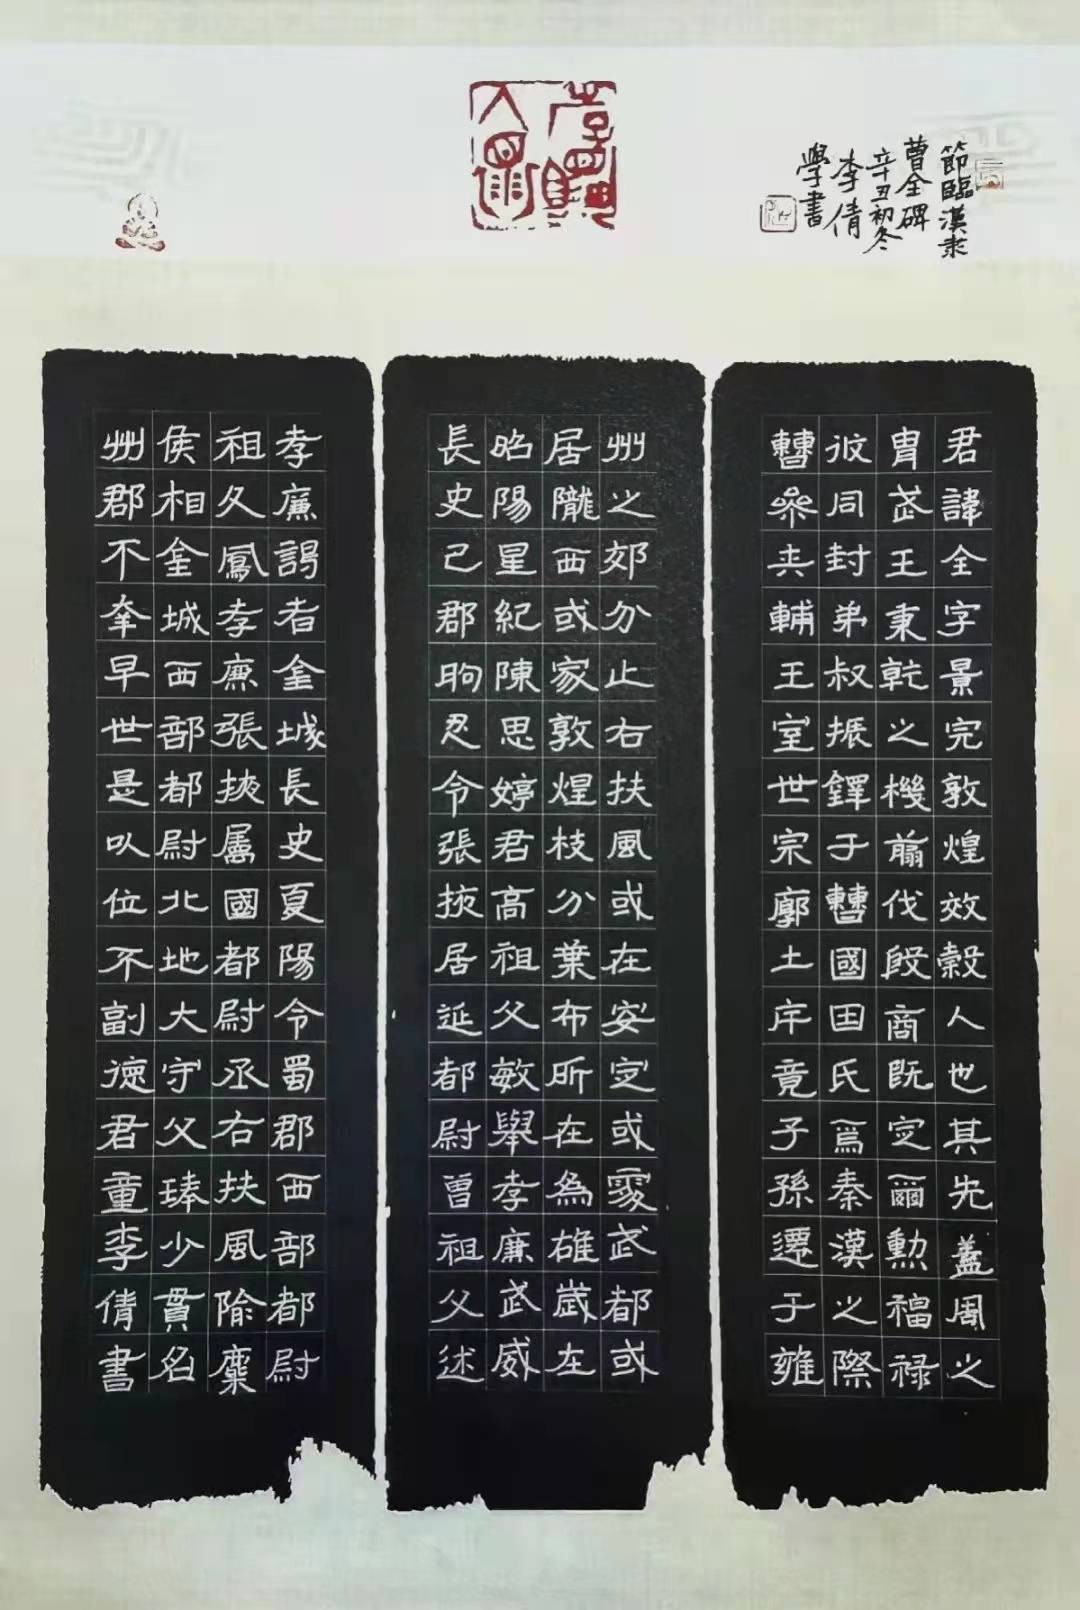 節臨漢隸
曹全碑
辛丑初冬
李倩
學書
君諱全字景完敦煌效穀人也其先蓋周之
胄武王秉乾之機翦伐殷商既定爾勳福祿
攸同封弟叔振鐸于曹國因氏焉秦漢之際
曹參夾輔王室世宗廓土斥竟子孫遷于雍
州之郊分止右扶風或在安定或處武都或
居隴西或家敦煌枝分葉布所在為雄歲在
昭陽星紀陳思婷君高祖父敏舉孝廉武威
長史巴郡朐忍令張掖居延都尉曾祖父述
孝廉謁者金城長史夏陽令蜀郡西部都尉
祖父鳳孝廉張掖屬國都尉丞右扶風隃麋
侯相金城西部都尉北地大守父琫少貫名
州郡不幸早世是以位不副德君童李倩書